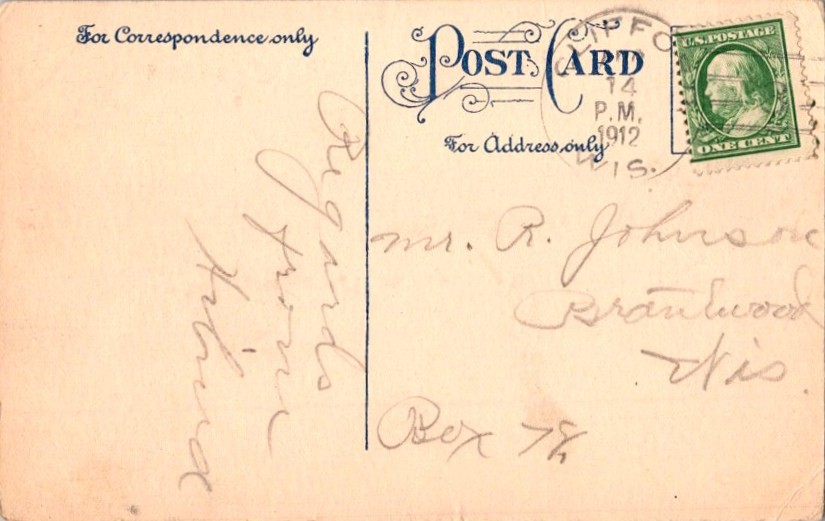 For Correspondence only
POST CARD
For Address only
CLIFFO
14
P.M.
1912
WIS.
U.S. POSTAGE
ONE CENT
Regards
from
Hilma
Mr. R. Johnson
Brantwood
Wis.
Box 78